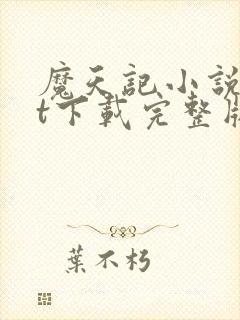 魔天記小說
t下載完整版
葉不朽